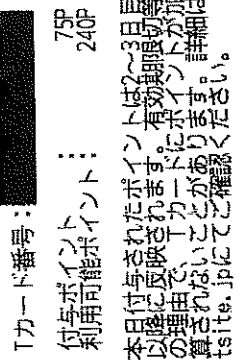 Tカード番号：
付与ポイント： 75P
利用可能ポイント： 240P
本日付与されたポイントは2〜3日目
以降に反映されます。有効期限切等
の理由で、Tカードにポイントが加
算されないことがあります。詳細は
tsite.jpにてご確認ください。